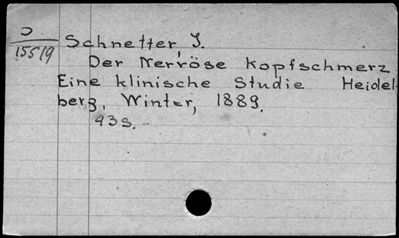 D
15519
Schnetter, J.
Der Nervöse Kopfschmerz
Eine klinische Studie Heidel-
berg, Winter, 1889.
43 s.